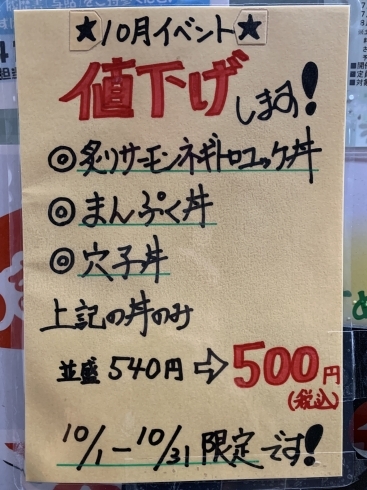 ★10月イベント★
値下げします!
◎炙りサーモンネギトロユッケ丼
◎まんぷく丼
◎穴子丼
上記の丼のみ
並盛 540円⇨500円
(税込)
10/1-10/31限定です!